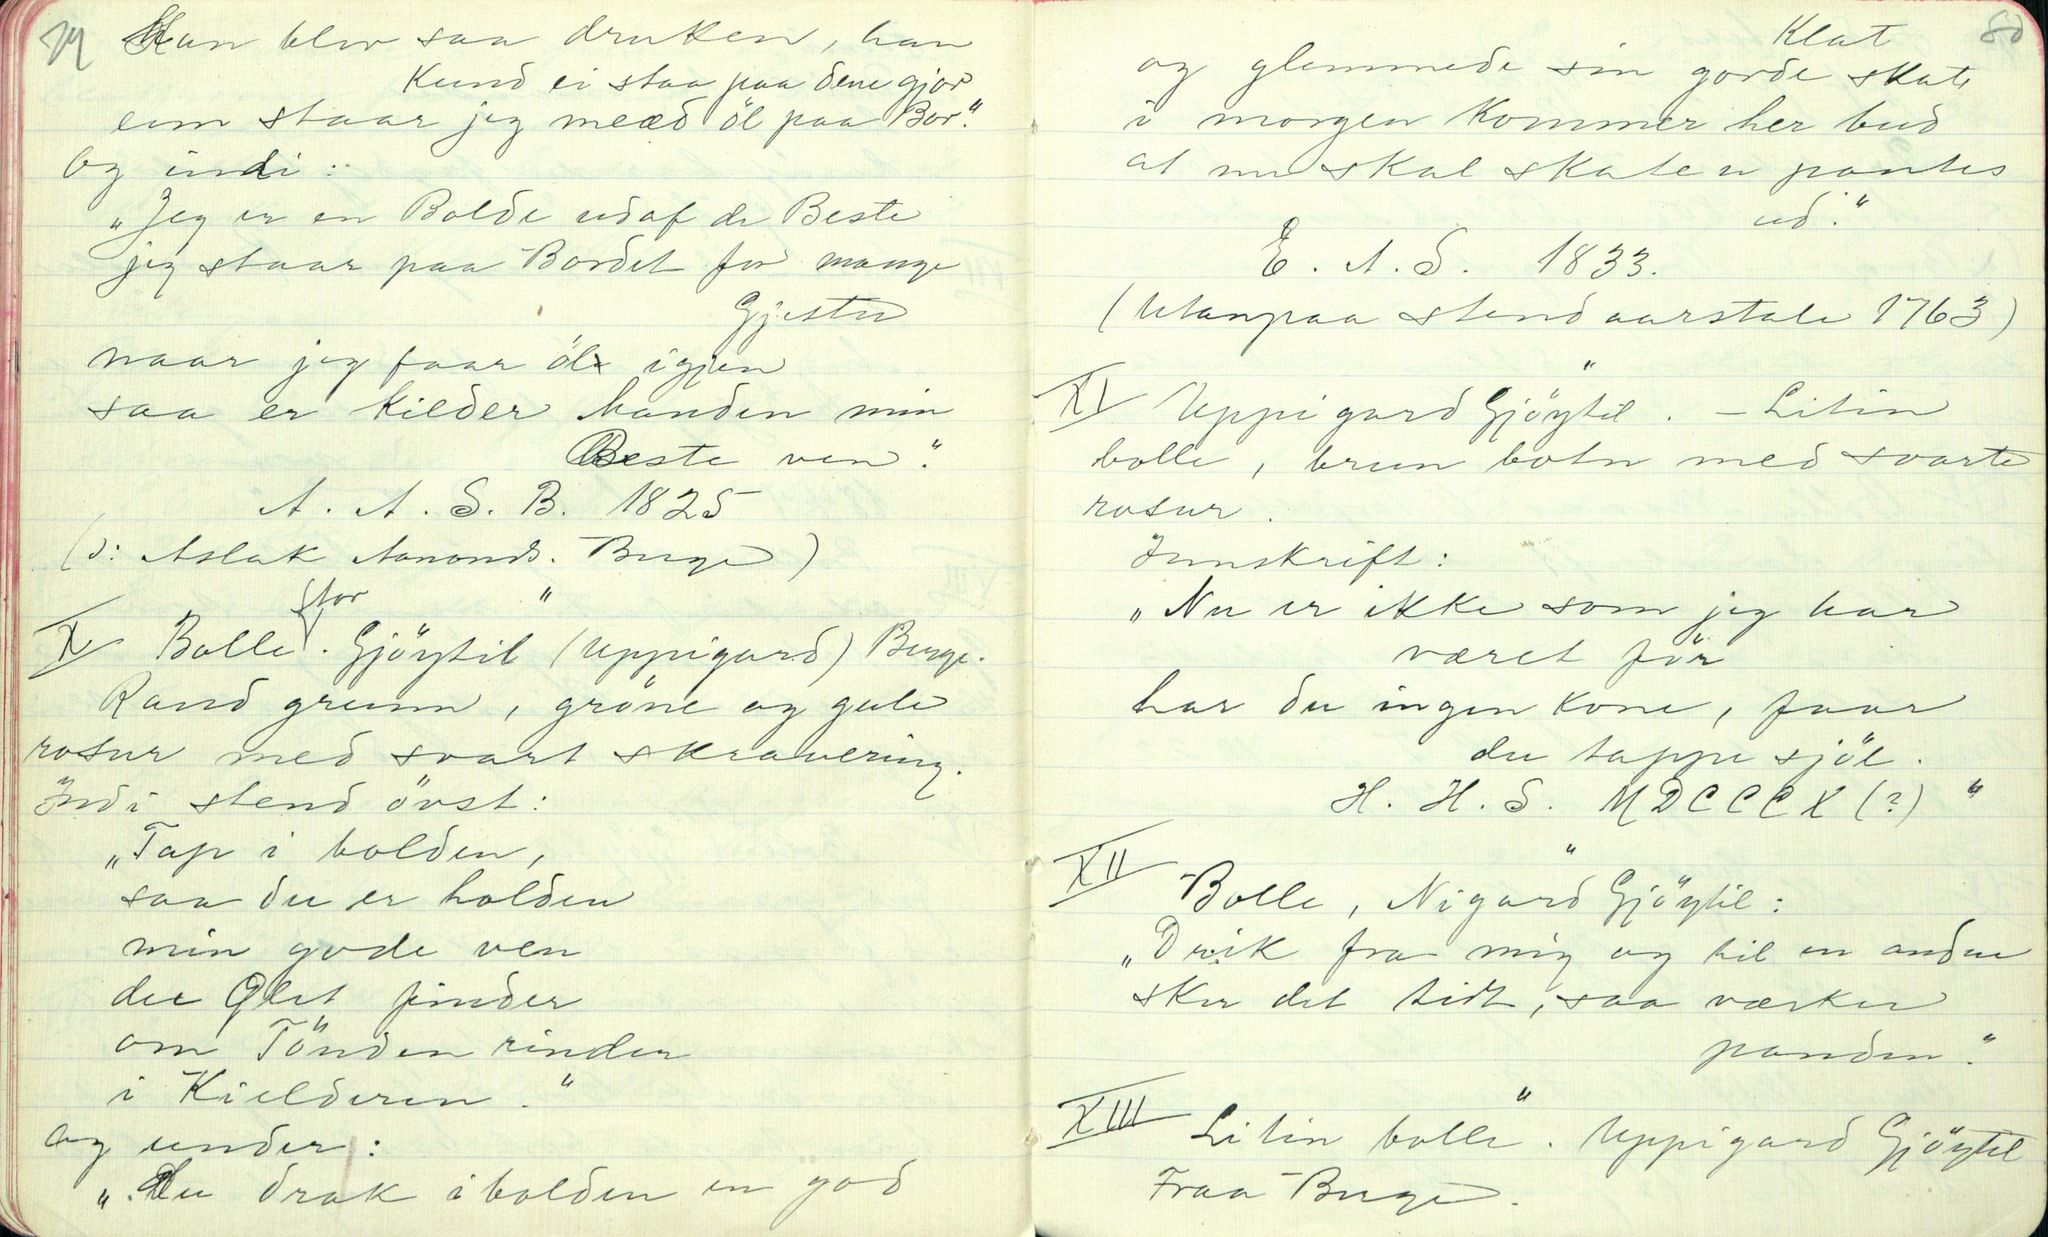 79
Han blev saa druken, han
kund ei staa paa dene gjor
em staar jeg meæd öl paa Bor."
Og indi:
"Jeg er en Bolde udaf de Beste
jeg staar paa Bordet for mange
Gjester
naar jeg faar öl igjen
saa er kilder handen min
Beste ven."
A. A. S. B. 1825
(ɔ: Aslak Aanonds. Berge)
"
X Bolle stor. Gjöytil (Uppigard) Berge.
Raud grunn, gröne og gule
rosur med svart skravering.
Indi stend övst:
"Tap i bolden,
saa du er holden
min gode ven
du Ölet finder
om Tönden rinder
i Kielderen."
Og under:
"Du drak i bolden en god
80
Klat
og glemmede sin gorde skate
i morgen kommer her bud
at nu skal skaten pantes
ud."
E. A. S. 1833.
(Utanpaa stend aarstale 1763)
"
XI Uppigard Gjöytil. – Litin
bolle, brun botn med svarte
rosur.
Innskrift:
"Nu er ikke som jeg har
været för
har du ingen kone, faar
du tappe sjöl.
H. H. S. MDCCCX (?) "
"
XII Bolle, Nigard Gjöytil:
"Drik fra mig og til en anden
sker det tidt, saa værker
panden."
"
XIII Litin bolle. Uppigard Gjöytil
Fraa Berge.